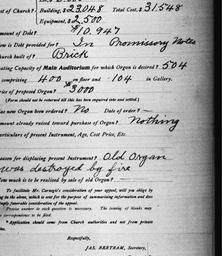 of Church? Building, $23,048 Total Cost, $31,548
Equipment, $2,500
Amount of Debt? $10,947
is Debt provided for? In Promissory Notes
Church built of? Brick
Seating Capacity of Main Auditorium for which Organ is desired? 504
comprising 400 on floor and 104 in Gallery.
Price of proposed Organ? $3000
(Form should not be returned till this has been enquired into and settled.)
Has new Organ been ordered? No Date of order? -
Amount already raised toward purchase of Organ? Nothing
Particulars of present Instrument? Age, Cost Price, Etc.
Reason for displacing present Instrument? Old Organ
was destroyed by fire
How much is to be realized by sale of old Organ? -
To facilitate Mr. Carnegie's consideration of your appeal, will you oblige by
filling in the above, which is sent for the purpose of summarizing information and does
not imply favorable consideration of the appeal.
Precise answer to each question is necessary. The issuing of blanks may
be correspondence to be filed.
Application should come from Church authorities and not from private
Respectfully,
JAS. BERTRAM, Secretary,